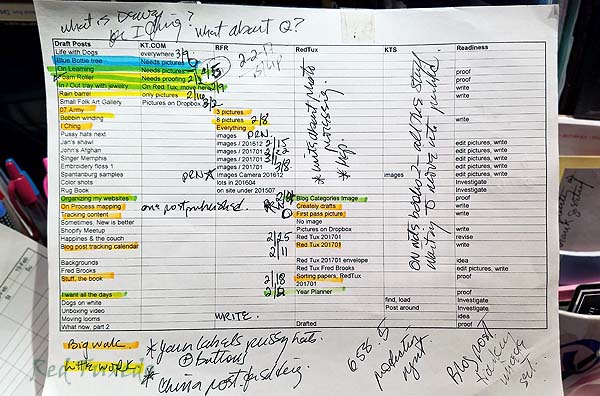 what is
or I Ching? what about Q?
Draft Posts KT.COM RFR RedTux KTS Readiness
Life with Dogs everywhere 3/9
Blue Bottle tree Needs pictures
On Learning Needs pictures proof
Foam Roller Needs proofing proof
In / Out tray with jewelry On Red Tux; move here 2/9 write
Rain barrel only pictures write
Small Folk Art Gallery Pictures on Dropbox 3/2
07 Army 3 pictures
Bobbin winding 8 pictures 2/8 write
I Ching Everything
Pussy hats next PRN.
Jan's shawl images / 201612 2/15 edit pictures, write
John's Afghan images / 201701 edit pictures, write
Singer Memphis images / 201701 edit pictures, write
Embroidery floss 1 images / 201701 edit pictures, write
Spantanburg samples PRN images Camera 201612 images edit pictures, write
Color shots lots in 201604 Investigate
Rug Book on site under 201507 Investigate
Organizing my websites Blog Categories Image proof
On Process mapping one post published. Creately drafts write
Tracking content First pass picture write
Sometimes, New is better No image
Shopify Meetup Pictures on Dropbox write
Happines & the couch 2/25 Red Tux 201701 revise
Blog post tracking calendar 2/11 Red Tux 201701 write
Backgrounds Red Tux 201701 envelope idea
Fred Brooks Red Tux Fred Brooks edit pictures, write
Stuff, the book 2/18 Sorting papers, RedTux 201701 proof
I want all the days Year Planner proof
Dogs on white find, load Investigate
Unboxing video Post around Investigate
Moving looms WRITE. idea
What now, part 2 Drafted proof
* write about photo processing.
ON mts books 2 - all this stuff
waiting to move into
Big walk
little work
* your labels pussy hats.
+ buttons
* China post
658.5
Blog post
Red Tuxedo